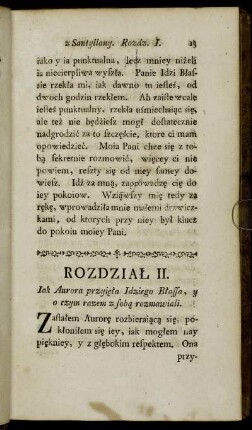 z Santyllany. Rozdz. I. 23
iako y ia punktualna, lecz mniey niżeli
ia niecierpliwa wyszła. Panie Idzi Błas-
sie rzekła mi, iak dawno tu iesteś, od
dwoch godzin rzekłem. Ah zaiste wcale
iesteś punktualny, rzekła uśmiechaiąc się,
ale też nie będziesz mogł dostatecznie
nadgrodzić za to szczęście, ktore ci mam
opowiedzieć. Moia Pani chce się z to-
bą sekretnie rozmowić, więcey ci nie
powiem, reszty się od niey samey do-
wiesz. Idź za mną, zaprowadzę cię do
iey pokoiow. Wziąwszy mię tedy za
rękę, wprowadziła mnie małemi drzwicz-
kami, od ktorych przy niey był klucz
do pokoiu moiey Pani.
ROZDZIAŁ II.
Iak Aurora przyięła Idziego Błassa, y
o czym razem z sobą rozmawiali.
Zastałem Aurorę rozbieraiącą się, po-
kłoniłem się iey, iak mogłem nay
piękniey, y z głębokim respektem. Ona
przy-